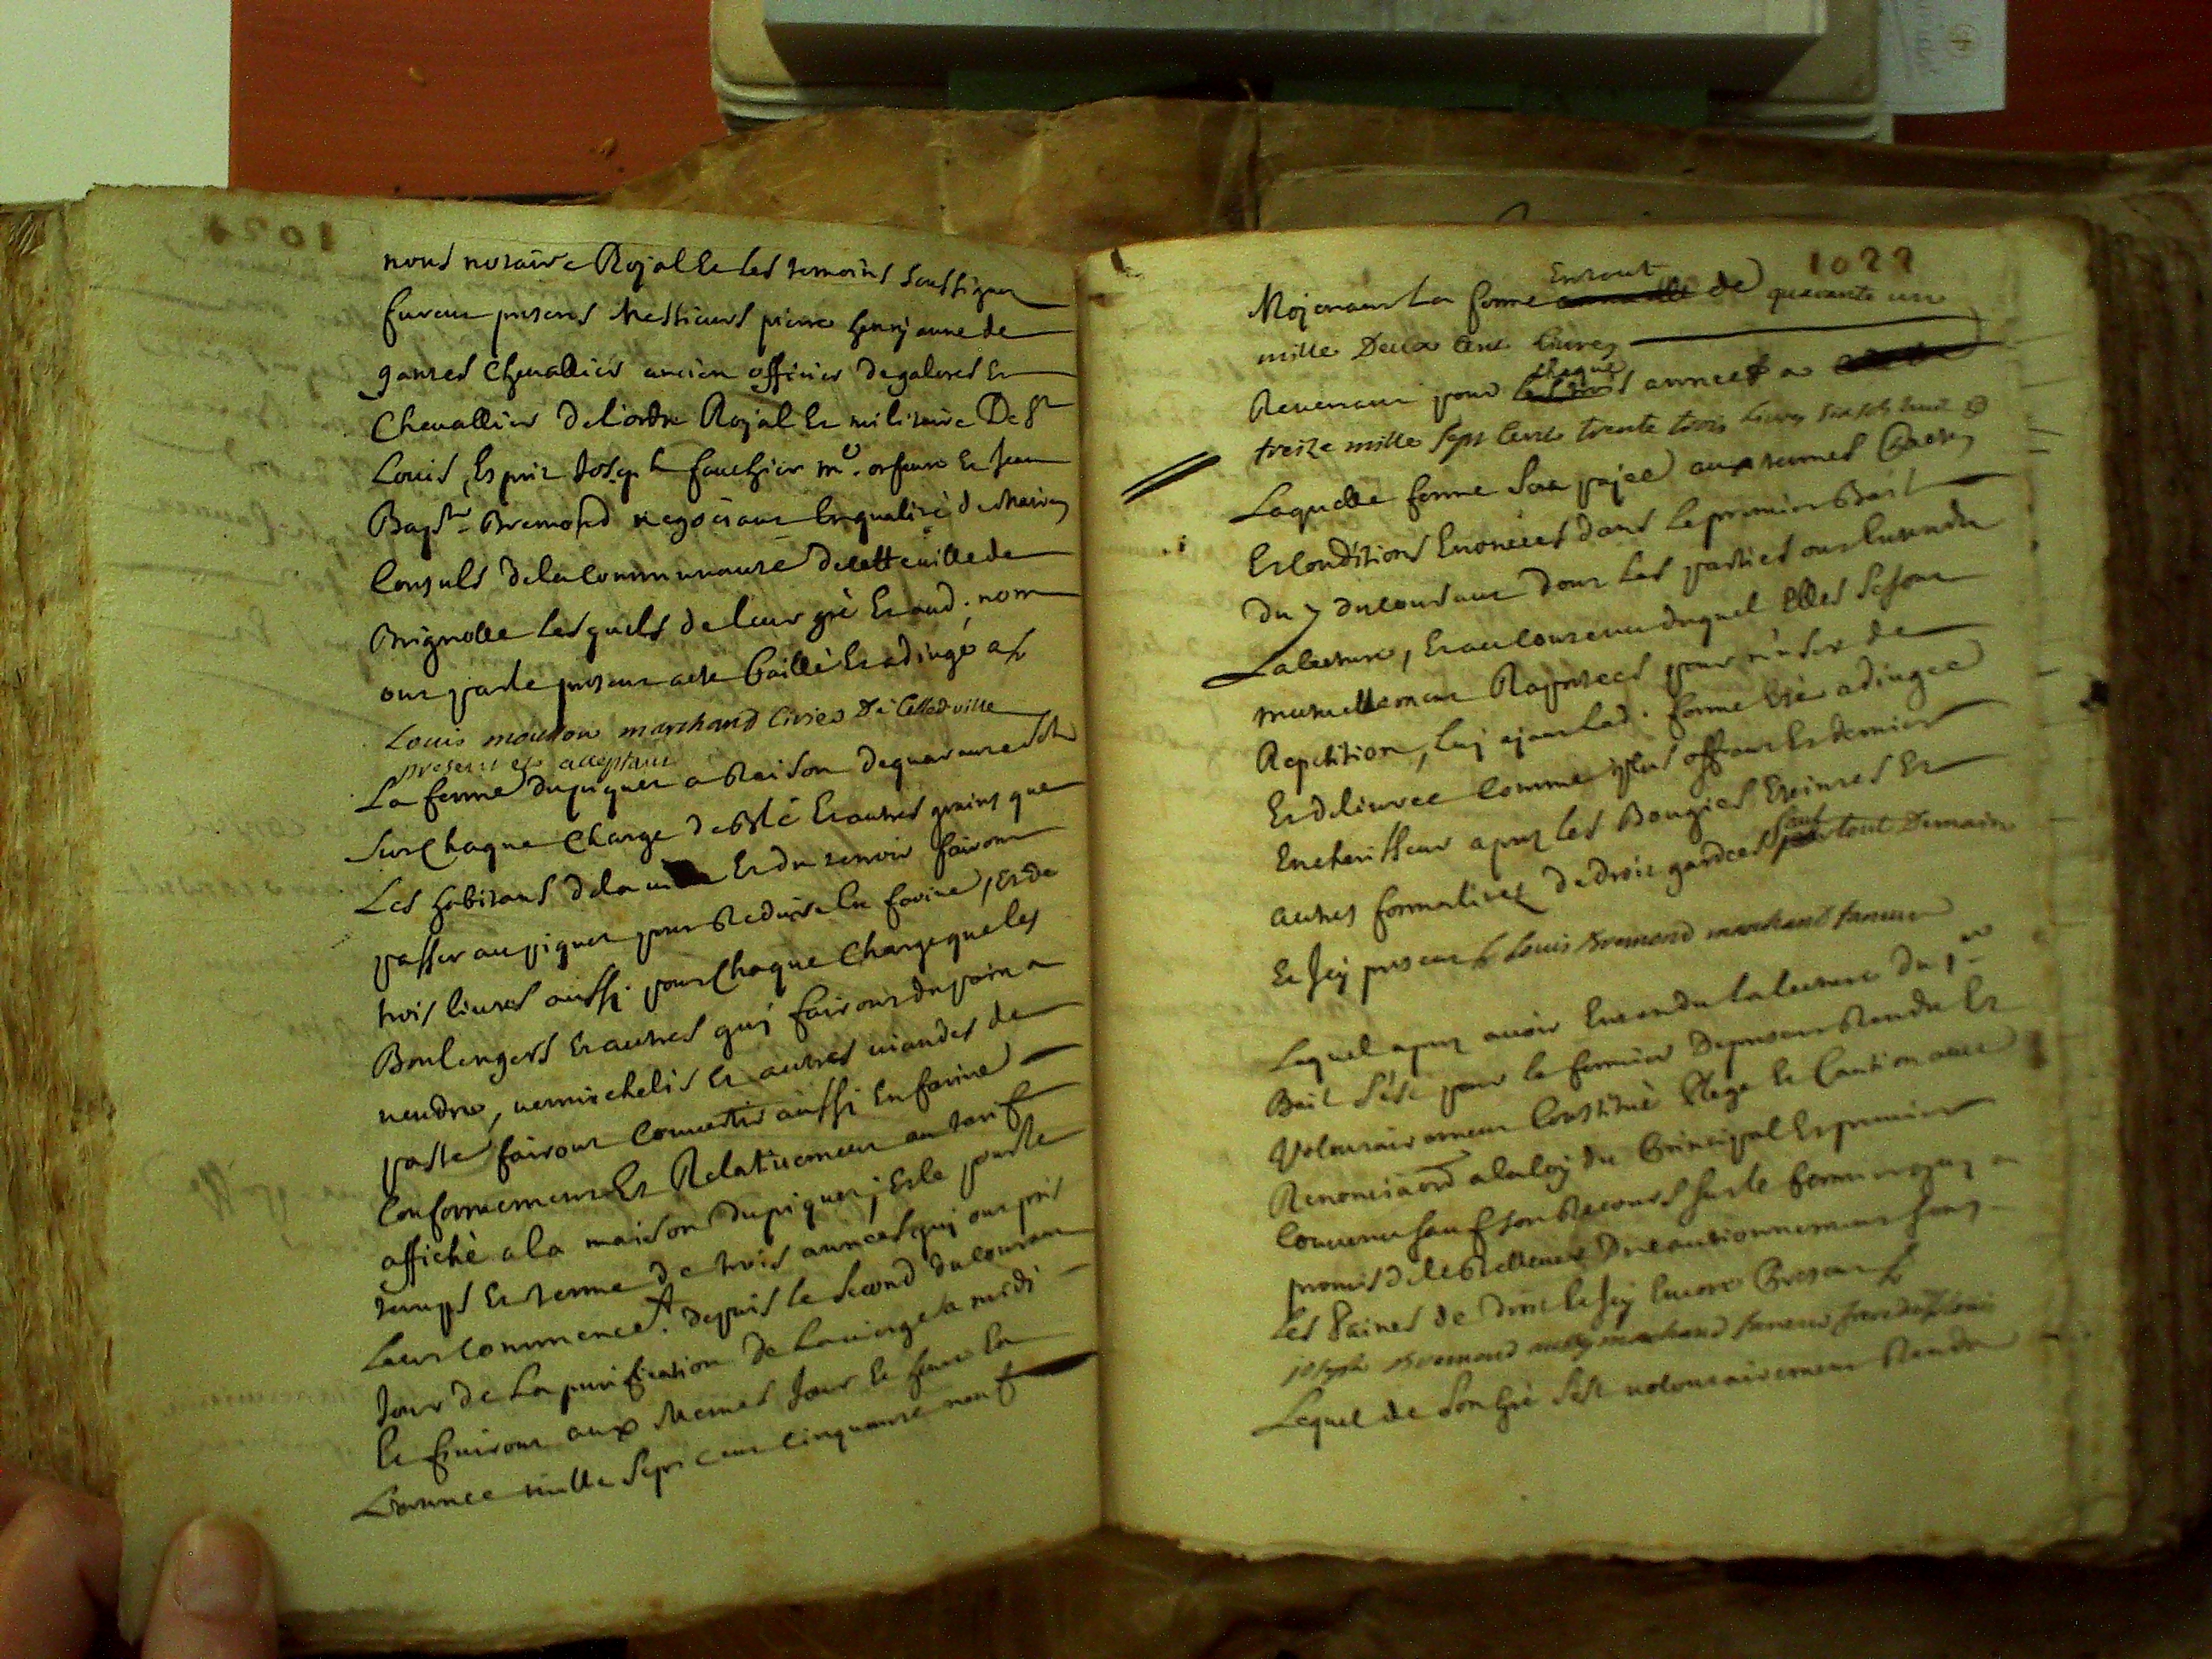 1021
nous notaire Royal Et les temoins soussignez
furent presens Messieurs pierre henry aune de
gantes Chevallier ancien officier de galeres Et
Chevallier de l'ordre Royal Et militaire De St
Louis, Esprit Joseph fauchier me. orfevre Et Jean
Baptte. Bremond negotiant En qualité de Maires
Consuls de la Communauté de cette ville de
Brignolle lesquels de leur gré Et aud. nom
ont par le present acte baillé Et adjugé a
Louis mouton marchand Cirier De Cette ville
present et acceptant
La ferme du piquet a Raison de quarante sols
sur Chaque Charge de Blé Et autres grains que
Les habitans de la Et du terroir fairont
passer au piquet pour Reduire En farine, Et de
trois livres aussi pour Chaque Charge que les
Boulengers Et autres quj fairont du pain a
vendre, vermichelis Et autres viandes de
paste fairont Convertir aussi En farine
Conformement Et Relativement au tarif
affiché a la maison du piquet; Et le pour le
temps Et terme de trois années quj ont pris
Leur Commencet. depuis le second du courant
Jour de La purification de La vierge a midi
Et finiront aux Memes Jour Et heure En
L'année mille Sept cent cinquante neuf
1022
Mojenant La ferme Entout de quarante un
mille Deux Cent livres
Revenant pour chaque années a
treize mille sept Cent trente trois livres six sols huit d
Laquelle ferme sera pajée aux termes
Et Conditions Enoncées dans le premier Bail
Du 7 du courant dont Les parties ont Entendu
La lecture, Et au Contenu duquel Elles se sont
mutuellement Raportées pour eviter de
Repetition, luj ajant lad. ferme Eté adjugée
Et delivrée Comme plus offrant Et dernier
Encherisseur aprez les Bougies Eteintes Et
autres formalitez de droit gardées sauf tout Demain
Et Icy present Sr Louis Bremond marchand taneur
Lequel aprez avoir Entendu la lecture du pr
Bail s'est pour le fermier Depresent Rendu Et
Volontairement Constitué Plege Et Caution avec
Renonciation a la loj du Principal Et premier
Convenu sauf son Recours sur le fermier quj a
promis de le Rellever Du cautionnement sous
Les Paines de droit Et Icy Encore Present Sr
joseph Bremond marchand taneur frere dud Sr louis
Lequel de son gré s'est volontairement Rendu